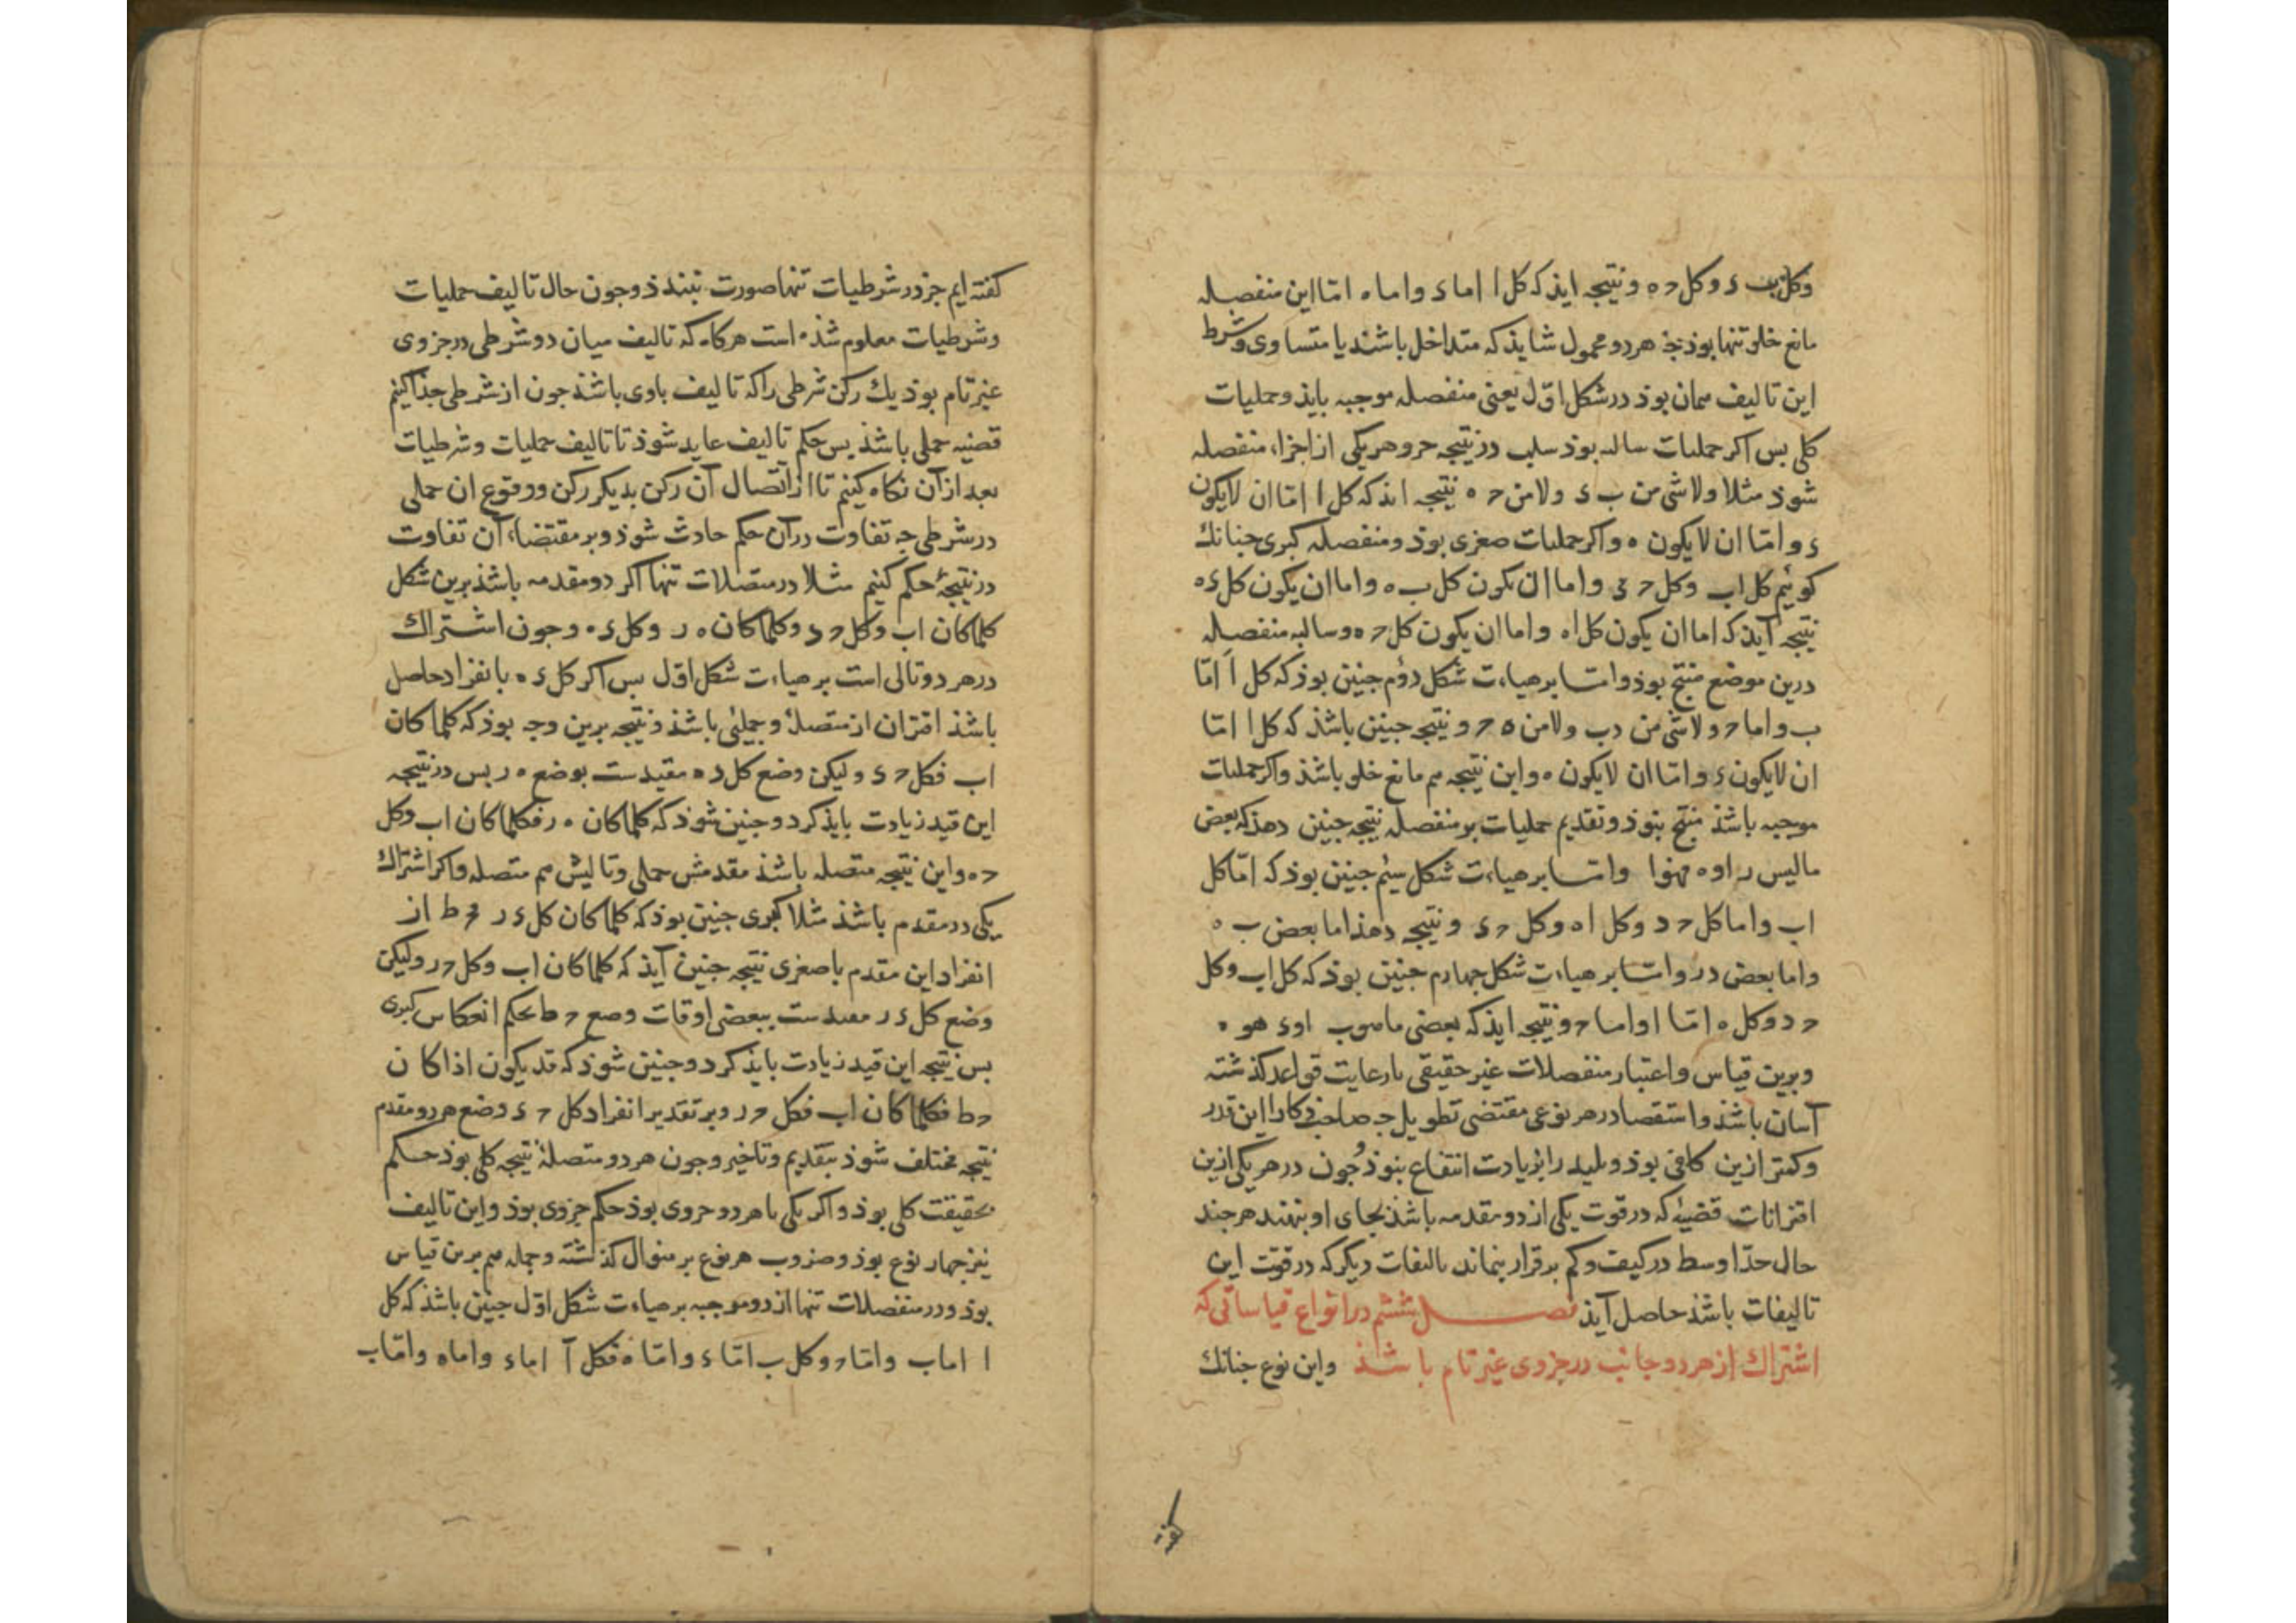 وکل ب ء وکل ح ه و نتیجه ایذ که کل ا اما ء واما ه امّا این منفصله
مانع خلو تنها بوذ چه هر دو محمول شاید که متداخل باشند یا متساوی و شرط
این تالیف همان بوذ در شکل اوّل یعنی منفصله موجبه بایذ و حملیات
کلی بس اکر حملیات سالبه بوذ سلب در نتیجه جزو هر یکی از اجزاء منفصله
شوذ مثلا ولا شی من ب ء ولا من ح ه نتیجه ایذ که کل ا امّا ان لایکون
ء و امّا ان لایکون ه و اکر حملیات صغری بوذ و منفصله کبری جنانك
کوئیم کل اب وکل ح ء واما ان یکون کل ب ه واما ان یکون کل ء ه
نتیجه آیذ که اما ان یکون کل ا ه واما ان یکون کل ح ه و سالبه منفصله
درین موضع منتج بوذ وامّا بر هیاءت شکل دوُم جنین بوذ که کل ا امّا
ب واما ح ولا شی من د ب ولا من ه ح و نتیجه جنین باشذ که کل ا امّا
ان لایکون ء و امّا ان لایکون ه و این نتیجه هم مانع خلو باشذ و اکر حملیات
موجبه باشذ منتج نبوذ و تقدیم حملیات بر منفصله نتیجه جنین دهذ که بعض
مالیس ر او ه فهو ا وامّا بر هیاءت شکل سیُم جنین بوذ که امّا کل
اب واما کل ح د وکل ا ه وکل ح ء و نتیجه دهذ اما بعض ب ه
واما بعض د ر وامّا بر هیاءت شکل جهارم جنین بوذ که کل اب وکل
ح د وکل ه امّا ا واما ح و نتیجه ایذ که بعضی ما هو ب او ء هو ه
و برین قیاس و اعتبار منفصلات غیر حقیقی با رعایت قواعد کذشته
آسان باشذ و استقصا در هر نوعی مقتضی تطویل جه صاحب ذکا را این قدر
و کمتر ازین کافی بوذ و بلید را بزیادت انتفاع نبوذ و جون در هر یکی ازین
اقترانات قضیهٔ که در قوت یکی از دو مقدمه باشذ بجای او بنهند هر جند
حال حدّ اوسط در کیفت و کم بر قرار نماند تالیفات دیکر که در قوّت این
تالیفات باشذ حاصل آیذ فصل ششم در انواع قیاساتی که
اشتراك از هر دو جانب در جزوی غیر تام باشذ و این نوع جنانك
کفته ایم جز در شرطیات تنها صورت نبندذ و جون حال تالیف حملیات
و شرطیات معلوم شذه است هرکاه که تالیف میان دو شرطی در جزوی
غیر تام بوذ یك رکن شرطی را که تالیف باوی باشذ جون از شرطی جذا کنیم
قضیه حملی باشذ بس حکم تالیف عاید شوذ تا تالیف حملیات و شرطیات
بعد از آن نکاه کنیم تا از اتّصال آن رکن بدیکر رکن و وقوع ان حملی
در شرطی جه تفاوت در آن حکم حادث شوذ و بر مقتضاء آن تفاوت
در نتیجهٔ حکم کنیم مثلا در متصلات تنها اکر دو مقدمه باشذ برین شکل
کلما کان اب وکل ح ء وکلما کان ه ر وکل ء ه و جون اشتراك
در هر دو تالی است بر هیاءت شکل اوّل بس اکر کل ء ه بانفراد حاصل
باشذ اقتران از متصلهٔ و حملئی باشذ و نتیجه برین وجه بوذ که کلما کان
اب فکل ح ء ولیکن وضع کل ء ه مقیدست بوضع ه ر بس در نتیجه
این قید زیادت بایذ کرد و جنین شوذ که کلما کان ه ر فکلما کان اب وکل
ح ه و این نتیجه متصله باشذ مقدمش حملی و تالیش هم متصله و اکر اشتراك
یکی در مقدم باشذ مثلا کبری جنین بوذ که کلما کان کل ء ر ف ح ط از
انفراد این مقدم با صغری نتیجه جنین آیذ که کلما کان اب وکل ح ر ولیکن
وضع کل ء ر مقیدست ببعضی اوقات وضع ح ط بحکم انعکاس کبری
بس نتیجه این قید زیادت بایذ کرد و جنین شوذ که قد یکون اذا کان
ح ط فکلما کان اب فکل ح ر و بر تقدیر انفراد کل ح ء وضع هر دو مقدم
نتیجه مختلف شوذ بتقدیم و تاخیر و جون هر دو متصلهٔ نتیجه کلی بوذ حکم
بحقیقت کلی بوذ و اکر یکی یا هر دو جزوی بوذ حکم جزوی بوذ و این تالیف
نیز جهار نوع بوذ و ضروب هر نوع بر منوال کذشته و جمله هم برین قیاس
بوذ و در منفصلات تنها از دو موجبه بر هیاءت شکل اوّل جنین باشذ که کل
ا اما ب وامّا ح وکل ب امّا ء وامّا ه فکل آ اما ء واما ه وامّا ب